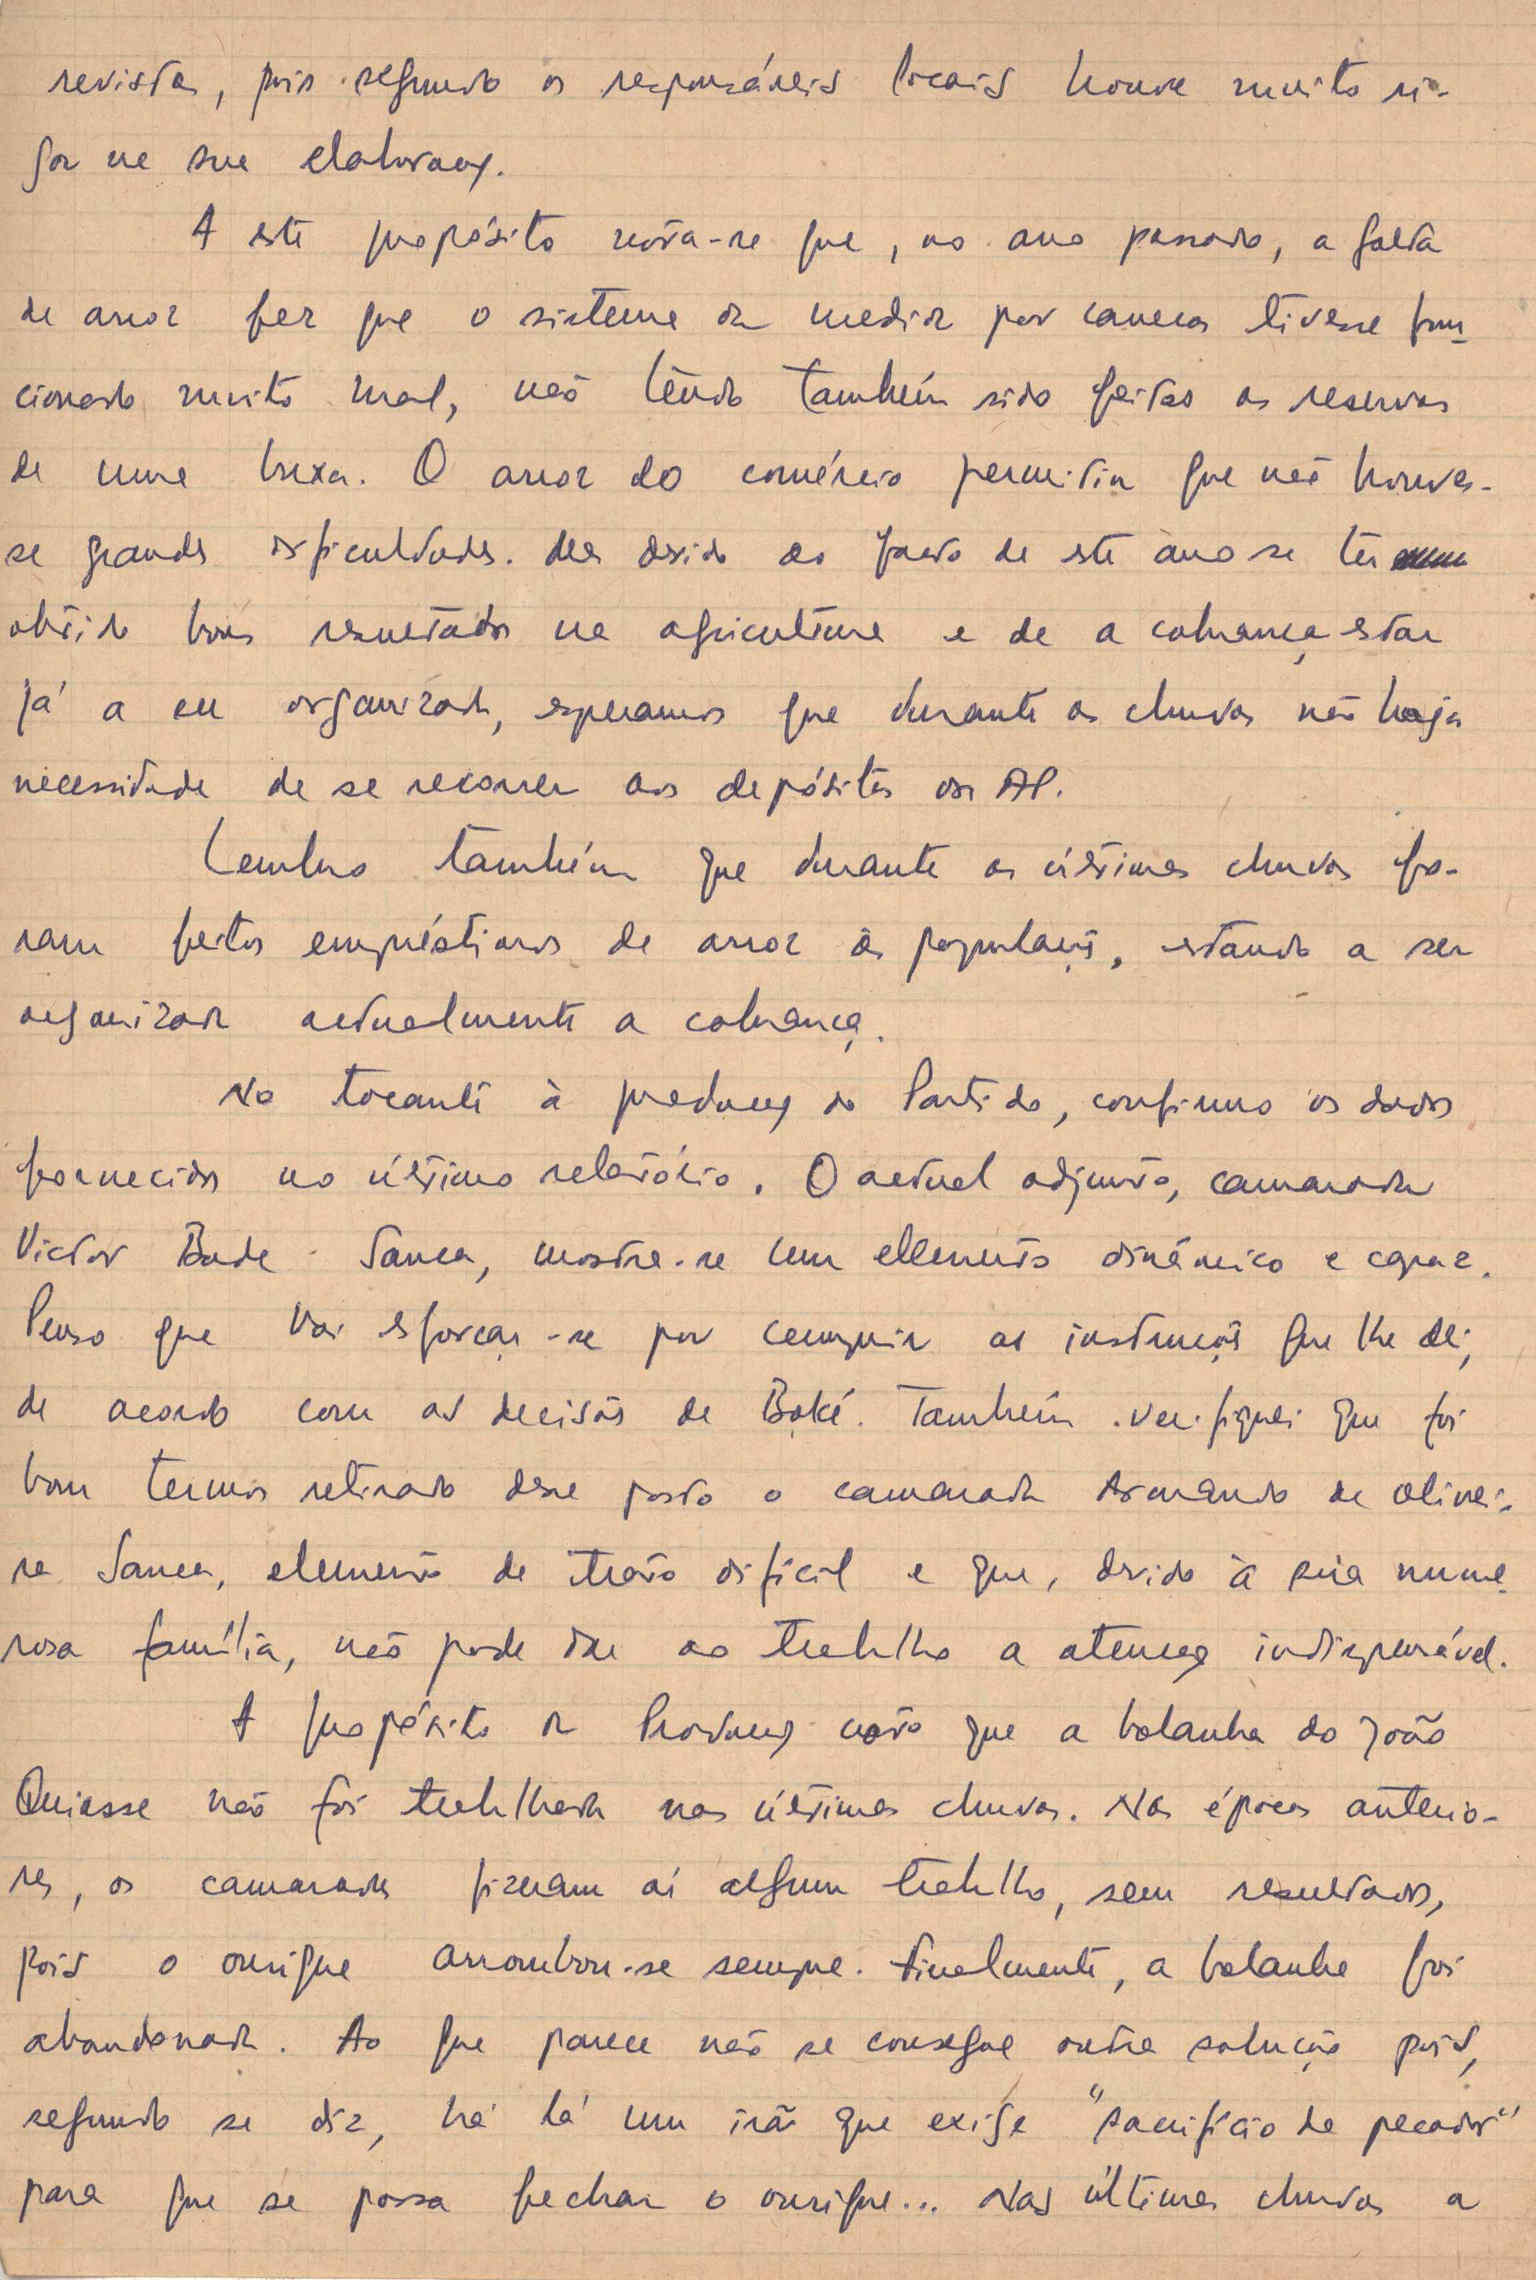 revistas, pois segundo os responsáveis locais houve muito ri-
gor na sua elaboração.
A este propósito nota-se que, no ano passado, a falta
de arroz fez que o sistema da medida por canecas tivesse fun-
cionado muito mal, não tendo também sido feitas as reservas
de uma buxa. O arroz do comércio permitiu que não houves-
se grandes dificuldades. Mas devido ao facto de este ano se ter
obtido bons resultados na agricultura e de a cobrança estar
já a ser organizada, esperamos que durante as chuvas não haja
necessidade de se recorrer aos depósitos dos AP.
Lembro também que durante as últimas chuvas fo-
ram feitos empréstimos de arroz às populações, estando a ser
organizada actualmente a cobrança.
No tocante à produção do Partido, confirmo os dados
fornecidos no último relatório. O actual adjunto, camarada
Victor Bude Sanca, mostra-se um elemento dinâmico e capaz.
Penso que vai esforçar-se por cumprir as instruções que lhe dei,
de acordo com as decisões de Boké. Também verifiquei que foi
bom termos retirado desse posto o camarada Armando de Olivei-
ra Sanca, elemento de trato difícil e que, devido à sua nume-
rosa família, não pode dar ao trabalho a atenção indispensável.
A propósito da Produção noto que a bolanha do João
Quiasse não foi trabalhada nas últimas chuvas. Nas épocas anterio-
res, os camaradas fizeram aí algum trabalho, sem resultados,
pois o ourique arrombou-se sempre. Finalmente, a bolanha foi
abandonada. Ao que parece não se consegue outra solução pois,
segundo se diz, há lá um irã que exige "sacrifício de pecador"
para que se possa fechar o ourique... Nas últimas chuvas a